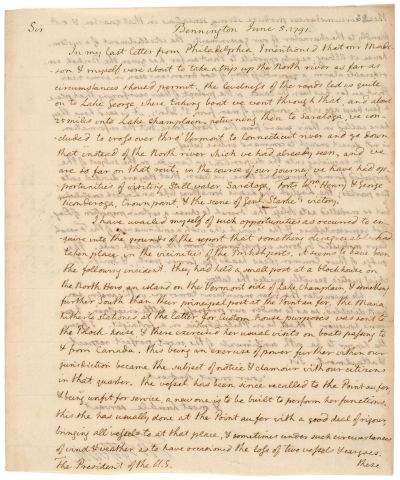 Sir Bennington June 5. 1791.
In my last letter from Philadelphia, I mentioned that mr Madi-
son & myself were about to take a trip up the North river as far as
circumstances should permit. the levelness of the roads led us quite
on to Lake George, where taking boat we went through that, and about
25 miles into Lake Champlain. returning then to Saratoga, we con-
cluded to cross over thro' Vermont to Connecticut river and go down
that instead of the North river which we had already seen, and we
are so far on that rout. in the course of our journey we have had op-
portunities of visiting Still water, Saratoga, Forts Wm. Henry & George
Ticonderoga, Crown point, & the scene of Genl. Starke's victory.
I have availed myself of such opportunities as occurred to en-
quire into the grounds of the report that something disagreeable had
taken place in the vicinities of the British posts. it seems to have been
the following incident. they had held a small post at a blockhouse on
the North Hero, an island on the Vermont side of Lake Champlain, & something
further South than their principal post at the Point au fer. the Maria
hitherto stationed at the latter for Custom house purposes was sent to
the Block-house & there exercised her usual visits on boats passing to
& from Canada. this being an exercise of power further within our
jurisdiction became the subject of notice & clamour with our citizens
in that quarter. the vessel has been since recalled to the Point au fer
& being unfit for service, a new one is to be built to perform her functions.
this she has usually done at the Point au fer with a good deal of rigour,
bringing all vessels to at that place, & sometimes under such circumstances
of wind & weather as to have occasioned the loss of two vessels & cargoes.
The President of the U.S. these